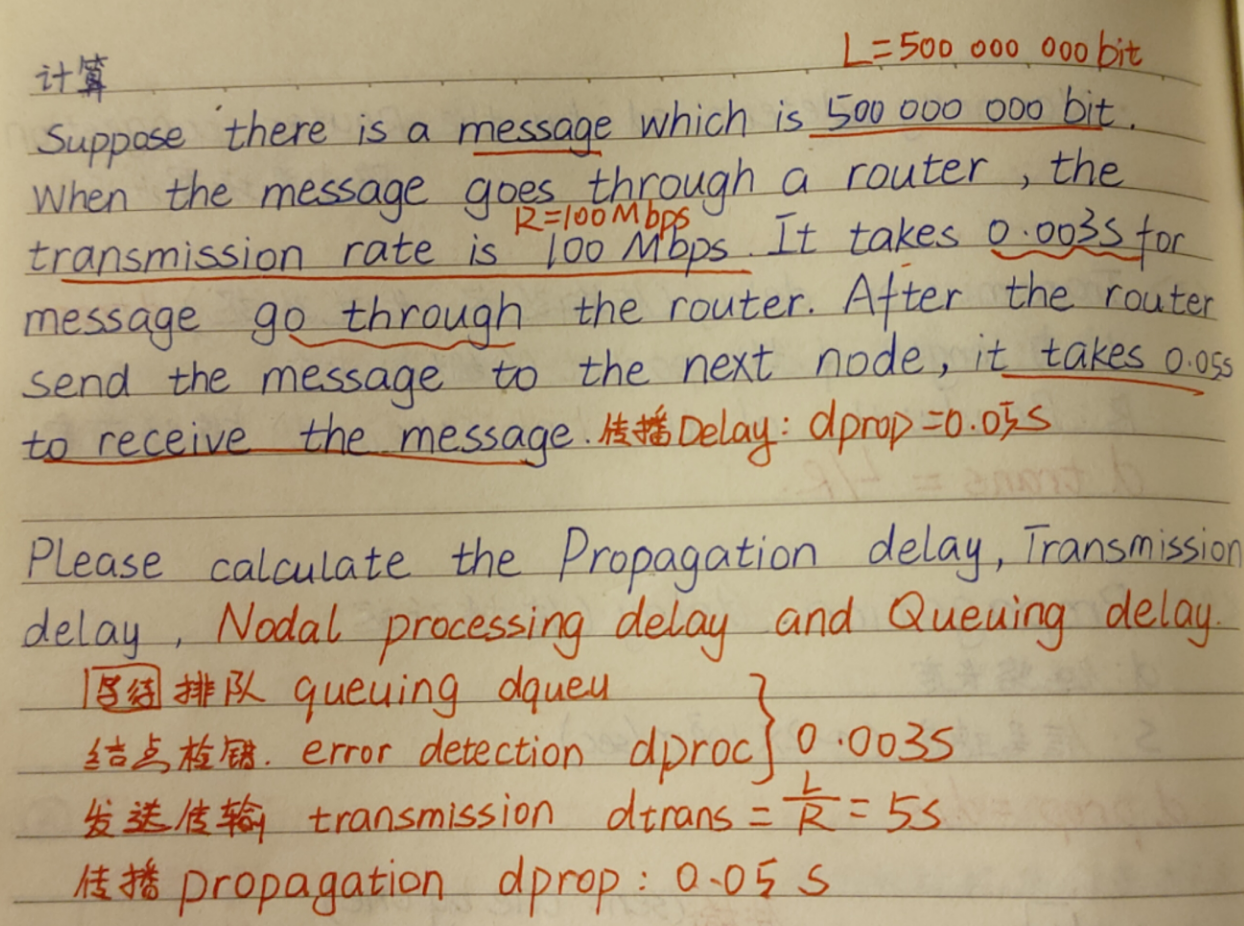 L=500 000 000 bit
计算
Suppose there is a message which is 500 000 000 bit.
When the message goes through a router, the
R=100Mbps
transmission rate is 100 Mbps. It takes 0.003s for
message go through the router. After the router
send the message to the next node, it takes 0.05s
to receive the message. 传播Delay: dprop=0.05s
Please calculate the Propagation delay, Transmission
delay, Nodal processing delay and Queuing delay.
排队 queuing dqueu
结点检错. error detection dproc } 0.003s
发送传输 transmission dtrans = L/R = 5s
传播 propagation dprop: 0.05 s